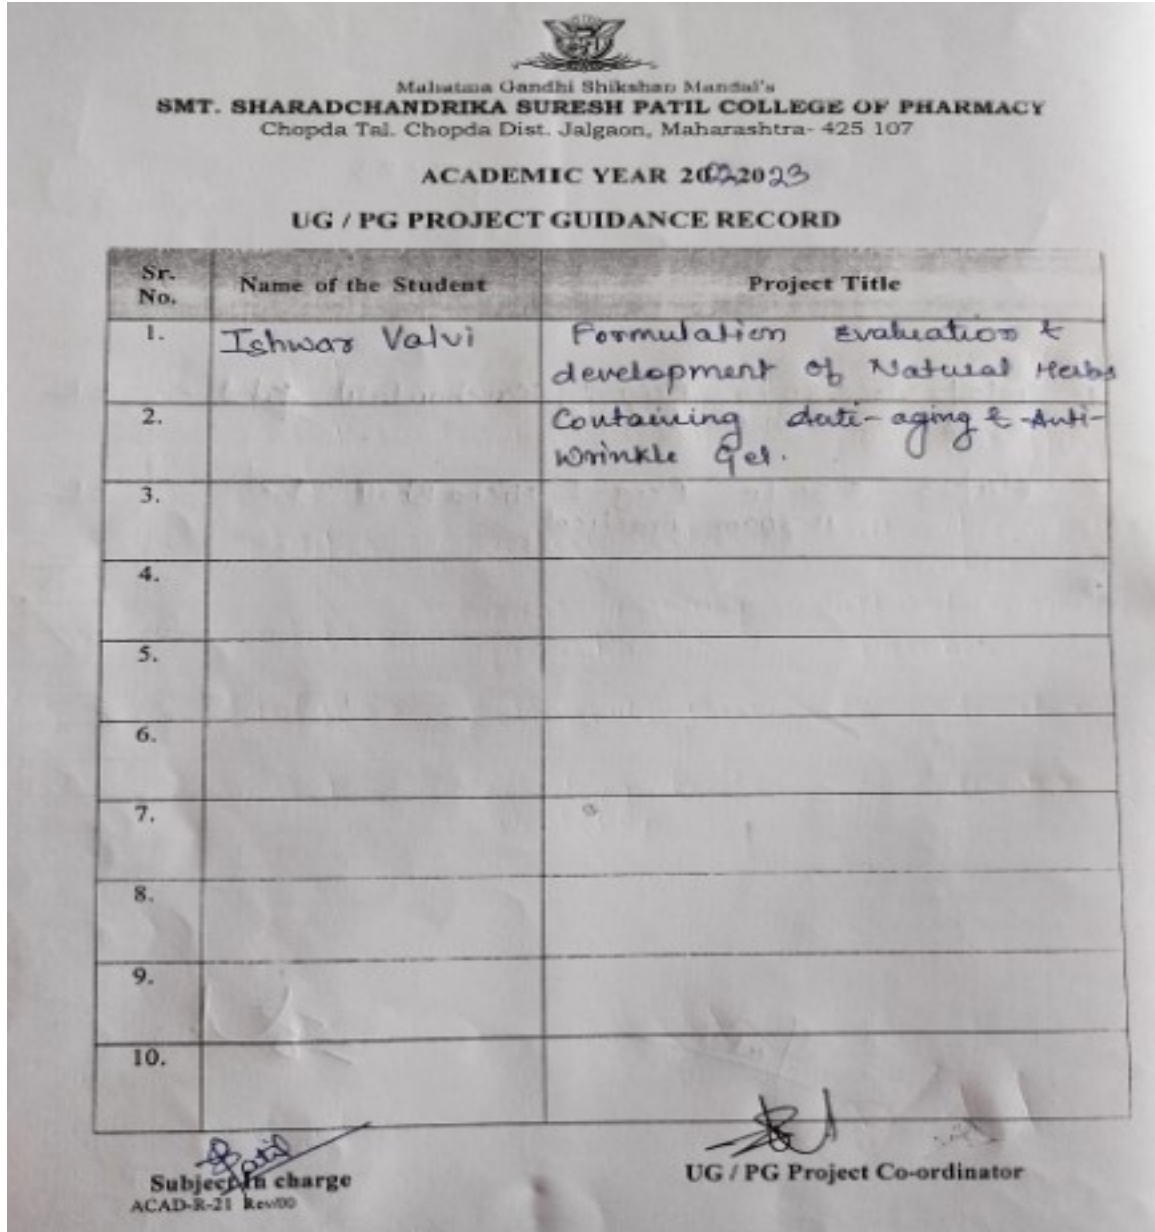 Mahatma Gandhi Shikshan Mandal's
SMT. SHARADCHANDRIKA SURESH PATIL COLLEGE OF PHARMACY
Chopda Tal. Chopda Dist. Jalgaon, Maharashtra- 425 107
ACADEMIC YEAR 2022023
UG / PG PROJECT GUIDANCE RECORD
Sr. No. Name of the Student Project Title
1. Ishwar Valvi Formulation Evaluation &
development of Natural Herbs
2. Containing Anti-aging & Anti-
Wrinkle Gel.
3.
4.
5.
6.
7.
8.
9.
10.
Patil
Subject In charge UG / PG Project Co-ordinator
ACAD-R-21 Rev/00